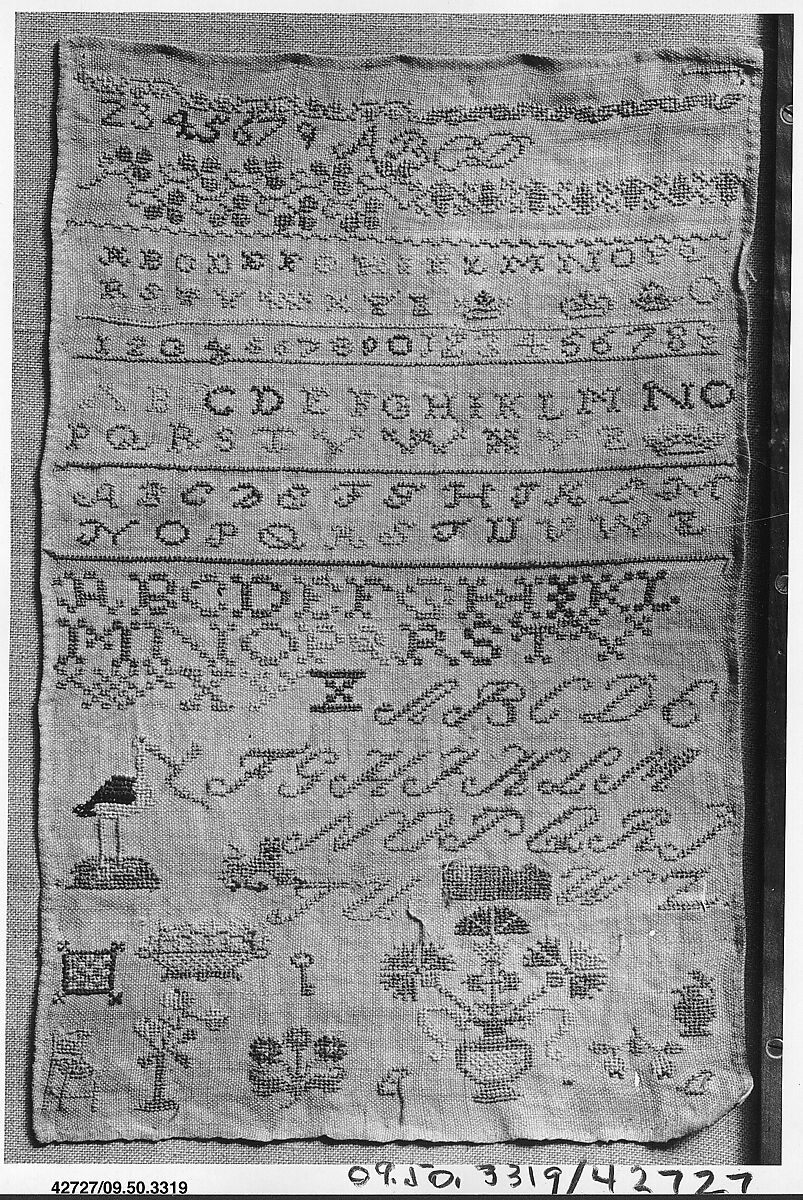 23 4 5 6 7 9 A B C D
A B C D E F G H I K L M N O P
R S T V W X Y I
1 2 0 4 5 6 7 8 9 0 1 2 3 4 5 6 7 8
A B C D E F G H I K L M N O
P Q R S T V W X Y Z
A B C D E F G H I K L M
N O P Q R S T U V W Z
A B C D E F G H I K L
M N O P Q R S T V
W X Y Z A B C D E
F G H I K L M
N O P Q R S
T V
42727/09.50.3319
09.50.3319/42727